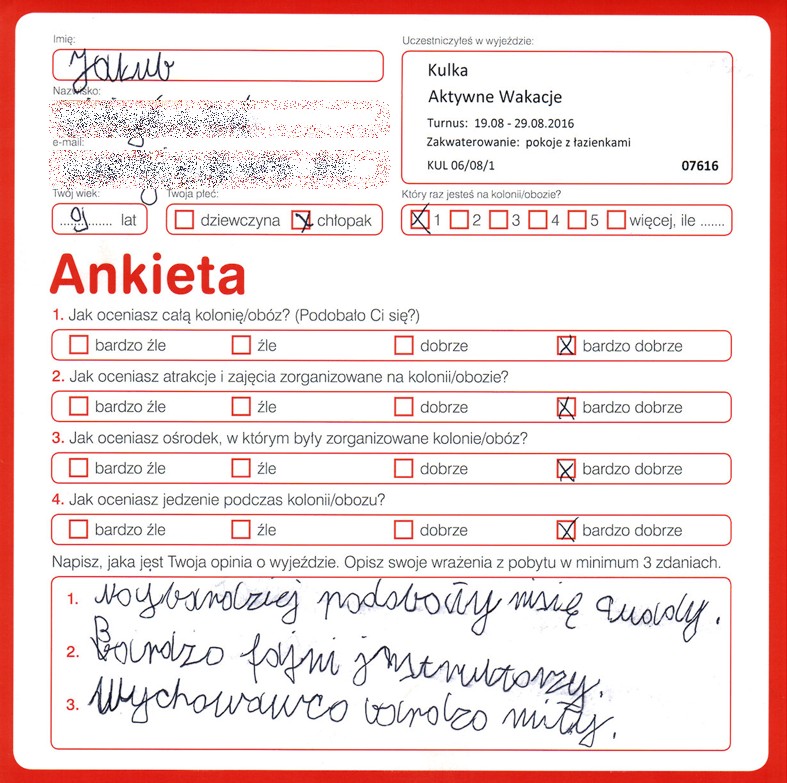 Imię:
Jakub
Nazwisko:
e-mail:
Twój wiek:
Twoja płeć:
..9.. lat
dziewczyna chłopak
Uczestniczyłeś w wyjeździe:
Kulka
Aktywne Wakacje
Turnus: 19.08 - 29.08.2016
Zakwaterowanie: pokoje z łazienkami
KUL 06/08/1 07616
Który raz jesteś na kolonii/obozie?
1 2 3 4 5 więcej, ile .......
Ankieta
1. Jak oceniasz całą kolonię/obóz? (Podobało Ci się?)
bardzo źle źle dobrze bardzo dobrze
2. Jak oceniasz atrakcje i zajęcia zorganizowane na kolonii/obozie?
bardzo źle źle dobrze bardzo dobrze
3. Jak oceniasz ośrodek, w którym były zorganizowane kolonie/obóz?
bardzo źle źle dobrze bardzo dobrze
4. Jak oceniasz jedzenie podczas kolonii/obozu?
bardzo źle źle dobrze bardzo dobrze
Napisz, jaka jest Twoja opinia o wyjeździe. Opisz swoje wrażenia z pobytu w minimum 3 zdaniach.
1. Najbardziej podobały misię quady.
2. Bardzo fajni jnstruktorzy.
3. Wychowawca bardzo miły.